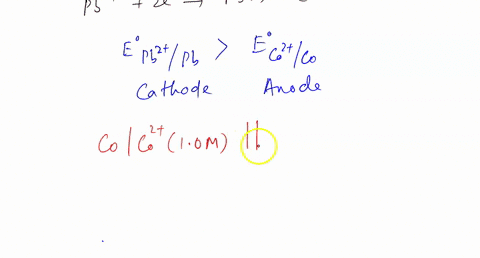 Pb²⁺ + 2e
E°Pb²⁺/Pb > E°Co²⁺/Co
Cathode Anode
Co | Co²⁺ (1.0M) ||